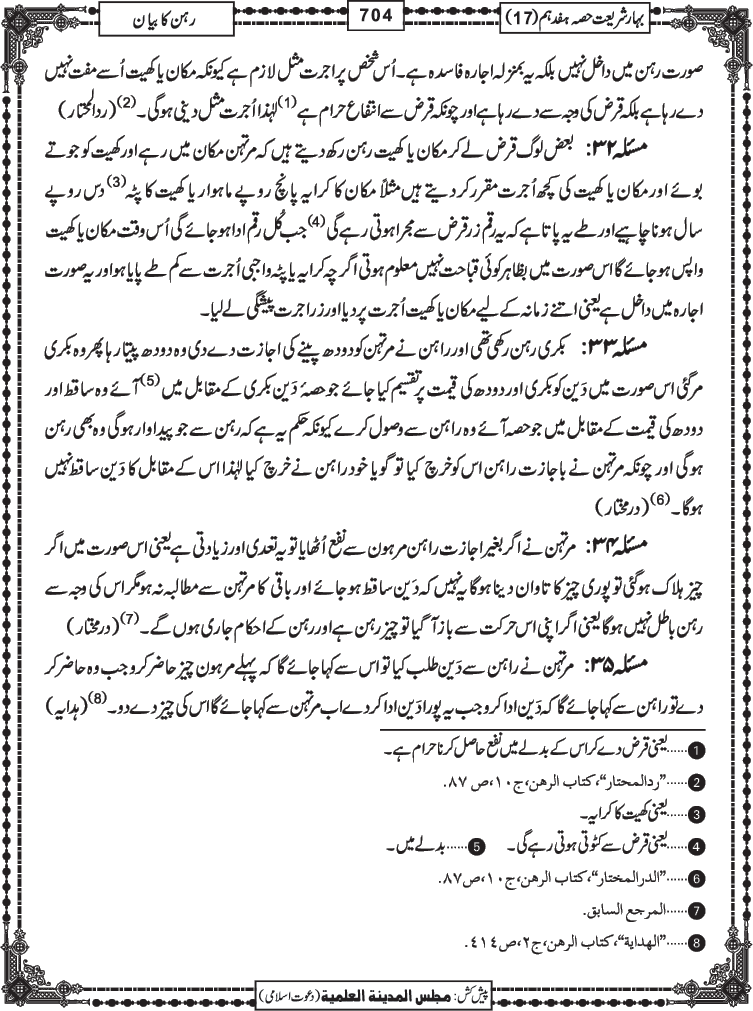 بہارشریعت حصہ ہفدہم (17)
704
رہن کا بیان
صورت رہن میں داخل نہیں بلکہ یہ بمنزلہ اجارہ فاسدہ ہے۔ اُس شخص پر اجرت مثل لازم ہے کیونکہ مکان یا کھیت اُسے مفت نہیں
دے رہا ہے بلکہ قرض کی وجہ سے دے رہا ہے اور چونکہ قرض سے انتفاع حرام ہے (1) لہٰذا اُجرت مثل دینی ہوگی۔ (2) (ردالمحتار)
مسئلہ ۳۲: بعض لوگ قرض لے کر مکان یا کھیت رہن رکھ دیتے ہیں کہ مرتہن مکان میں رہے اور کھیت کو جوتے
بوئے اور مکان یا کھیت کی کچھ اُجرت مقرر کر دیتے ہیں مثلاً مکان کا کرایہ پانچ روپے ماہوار یا کھیت کا پٹہ (3) دس روپے
سال ہونا چاہیے اور طے یہ پاتا ہے کہ یہ رقم زر قرض سے مجرا ہوتی رہے گی (4) جب کُل رقم ادا ہوجائے گی اُس وقت مکان یا کھیت
واپس ہو جائے گا اس صورت میں بظاہر کوئی قباحت نہیں معلوم ہوتی اگرچہ کرایہ یا پٹہ واجبی اُجرت سے کم طے پایا ہو اور یہ صورت
اجارہ میں داخل ہے یعنی اتنے زمانہ کے لیے مکان یا کھیت اُجرت پر دیا اور زر اجرت پیشگی لے لیا۔
مسئلہ ۳۳: بکری رہن رکھی تھی اور راہن نے مرتہن کو دودھ پینے کی اجازت دے دی وہ دودھ پیتا رہا پھر وہ بکری
مرگئی اس صورت میں دَین کو بکری اور دودھ کی قیمت پر تقسیم کیا جائے جو حصۂ دَین بکری کے مقابل میں (5) آئے وہ ساقط اور
دودھ کی قیمت کے مقابل میں جو حصہ آئے وہ راہن سے وصول کرے کیونکہ حکم یہ ہے کہ رہن سے جو پیداوار ہوگی وہ بھی رہن
ہوگی اور چونکہ مرتہن نے باجازت راہن اس کو خرچ کیا تو گویا خود راہن نے خرچ کیا لہٰذا اس کے مقابل کا دَین ساقط نہیں
ہوگا۔ (6) (درمختار)
مسئلہ ۳۴: مرتہن نے اگر بغیر اجازت راہن مرہون سے نفع اُٹھایا تو یہ تعدی اور زیادتی ہے یعنی اس صورت میں اگر
چیز ہلاک ہوگئی تو پوری چیز کا تاوان دینا ہوگا یہ نہیں کہ دَین ساقط ہو جائے اور باقی کا مرتہن سے مطالبہ نہ ہو مگر اس کی وجہ سے
رہن باطل نہیں ہوگا یعنی اگر اپنی اس حرکت سے باز آگیا تو چیز رہن ہے اور رہن کے احکام جاری ہوں گے۔ (7) (درمختار)
مسئلہ ۳۵: مرتہن نے راہن سے دَین طلب کیا تو اس سے کہا جائے گا کہ پہلے مرہون چیز حاضر کرو جب وہ حاضر کر
دے تو راہن سے کہا جائے گا کہ دَین ادا کرو جب یہ پورا دَین ادا کر دے اب مرتہن سے کہا جائے گا اس کی چیز دے دو۔ (8) (ہدایہ)
1 ......یعنی قرض دے کر اس کے بدلے میں نفع حاصل کرنا حرام ہے۔
2 ......"ردالمحتار"، کتاب الرھن، ج۱۰، ص ۸۷.
3 ......یعنی کھیت کا کرایہ۔
4 ......یعنی قرض سے کٹوتی ہوتی رہے گی۔ 5 ......بدلے میں۔
6 ......"الدرالمختار"، کتاب الرھن، ج۱۰، ص۸۷.
7 ......المرجع السابق.
8 ......"الھدایة"، کتاب الرھن، ج۲، ص۴۱۴.
پیش کش: مجلس المدینة العلمیة (دعوت اسلامی)